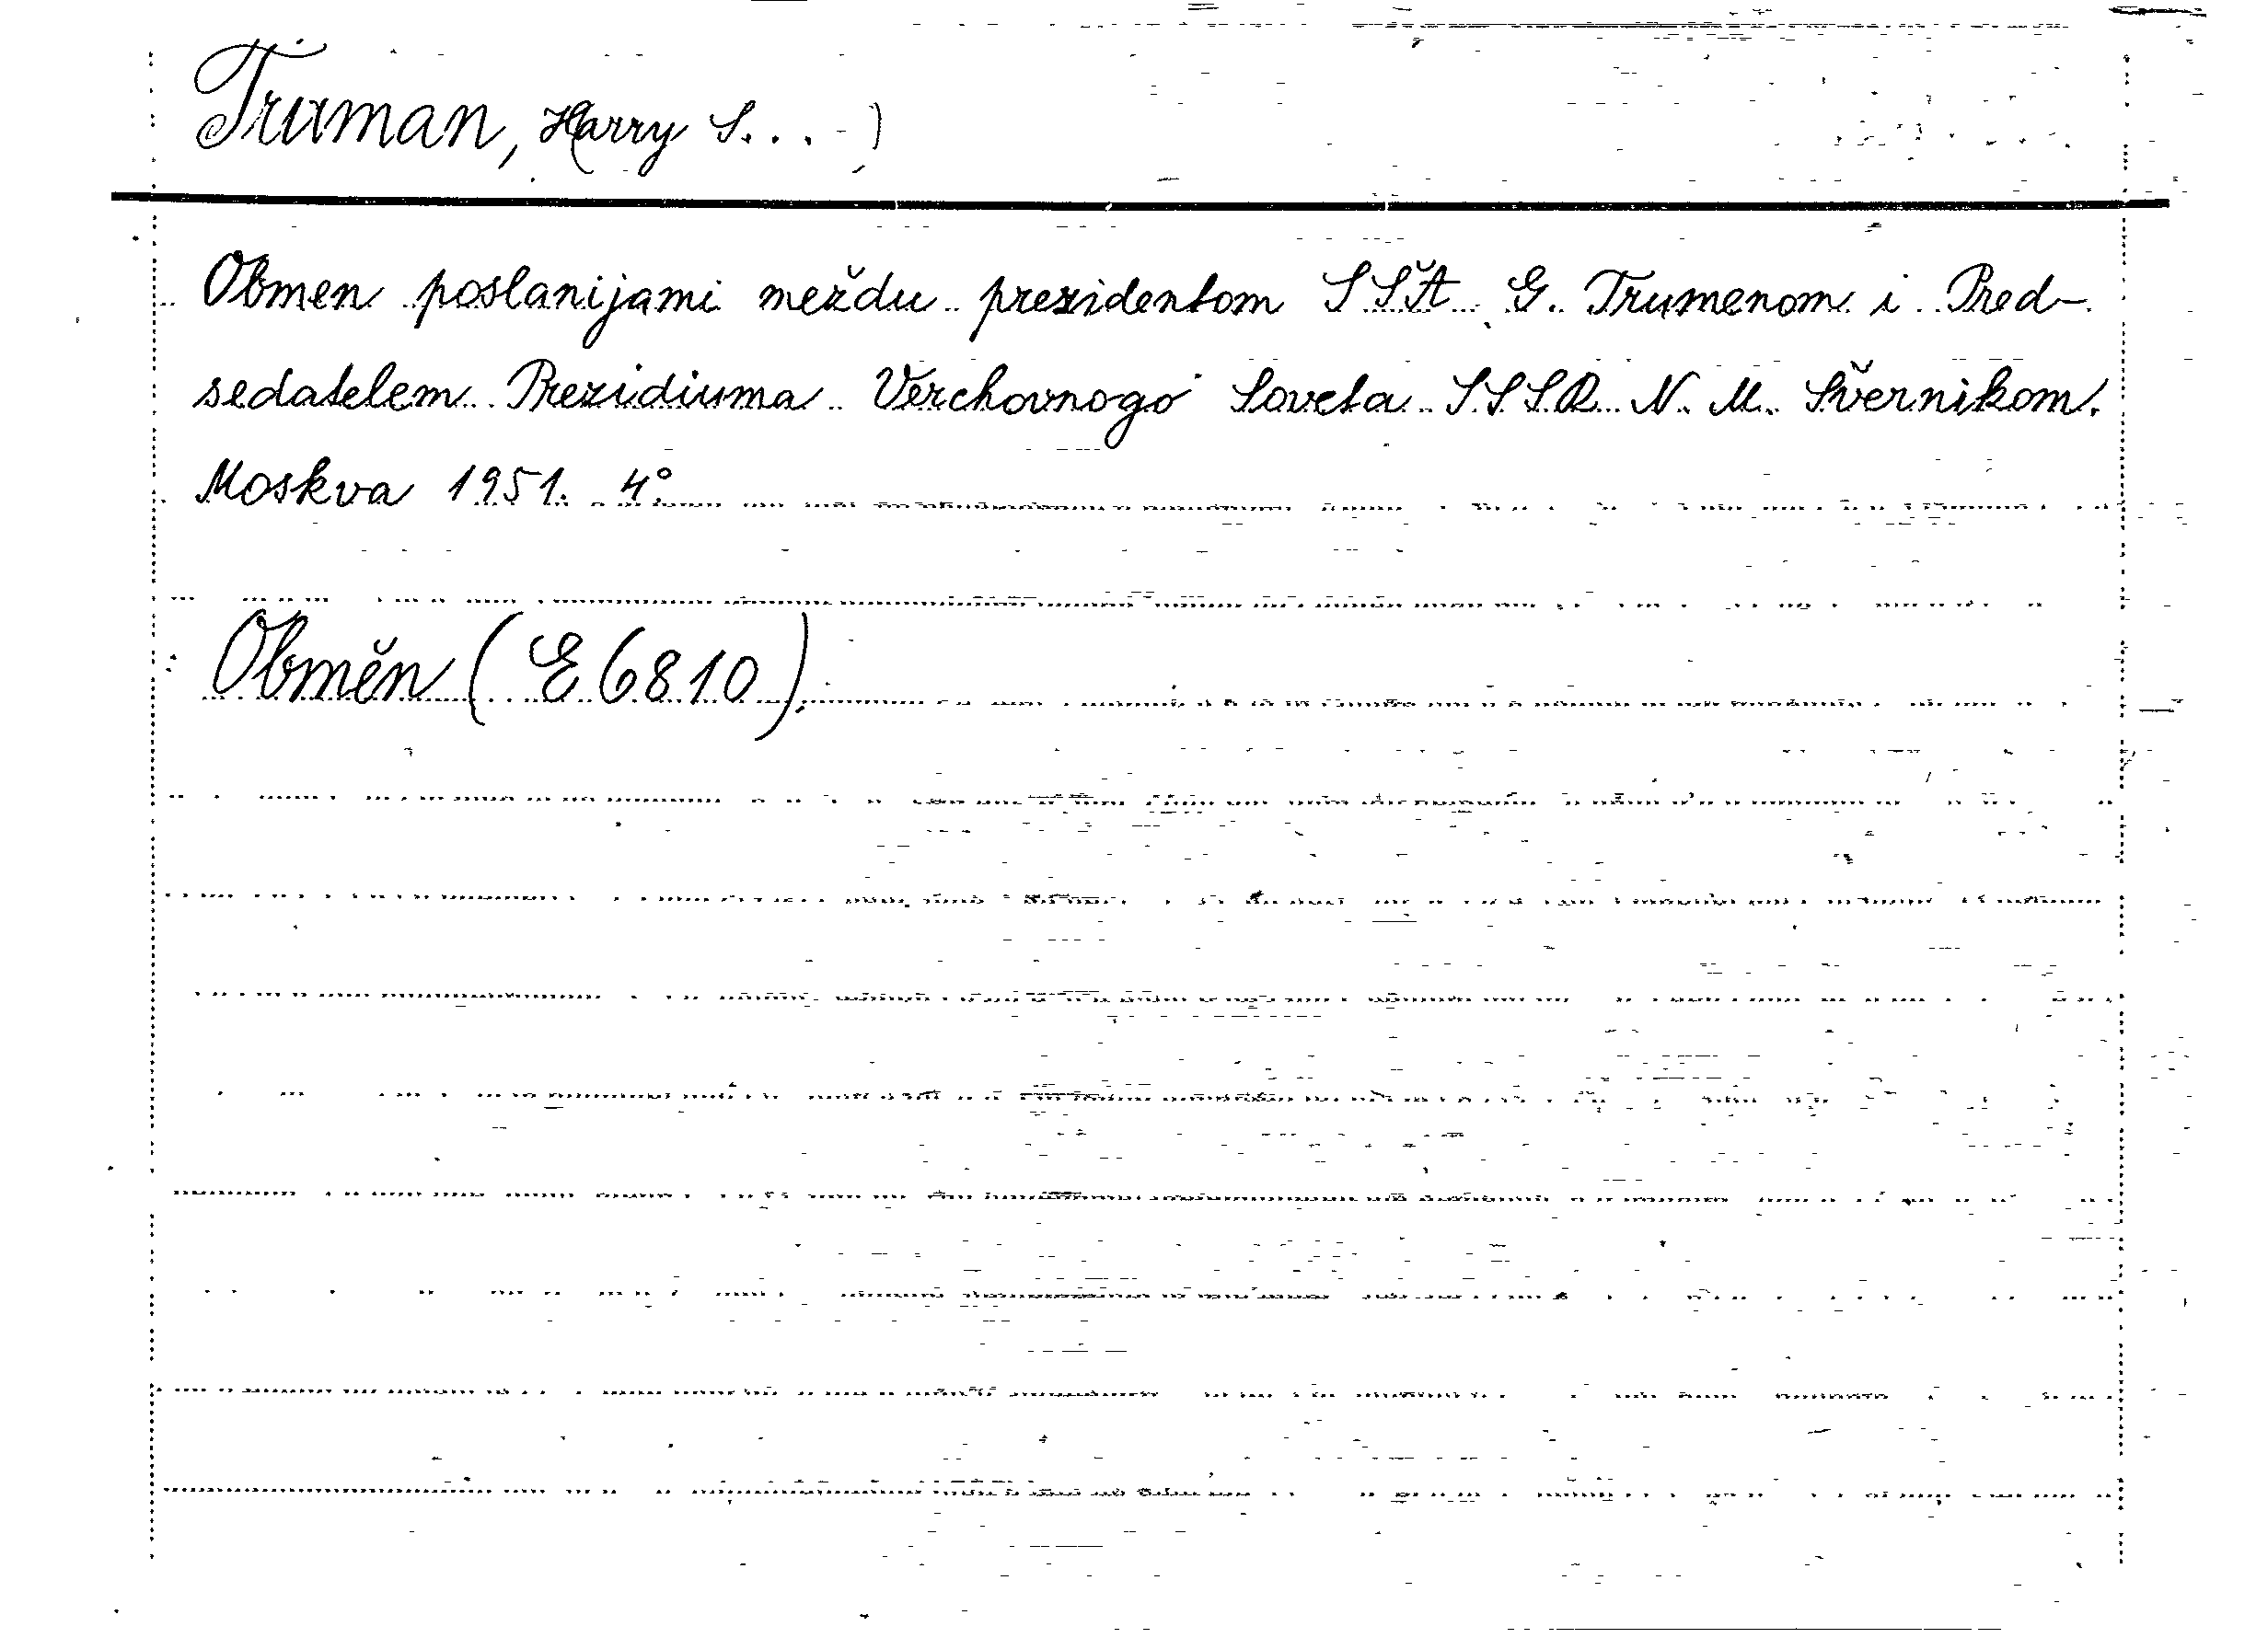 Truman, Harry S...)
Obmen poslanijami meždu prezidentom SSŠA G. Trumenom i Pred-
sedatelem Prezidiuma Verchovnogo Soveta SSSR N. M. Švernikom.
Moskva 1951. 4°.
Obměn (E 6810).